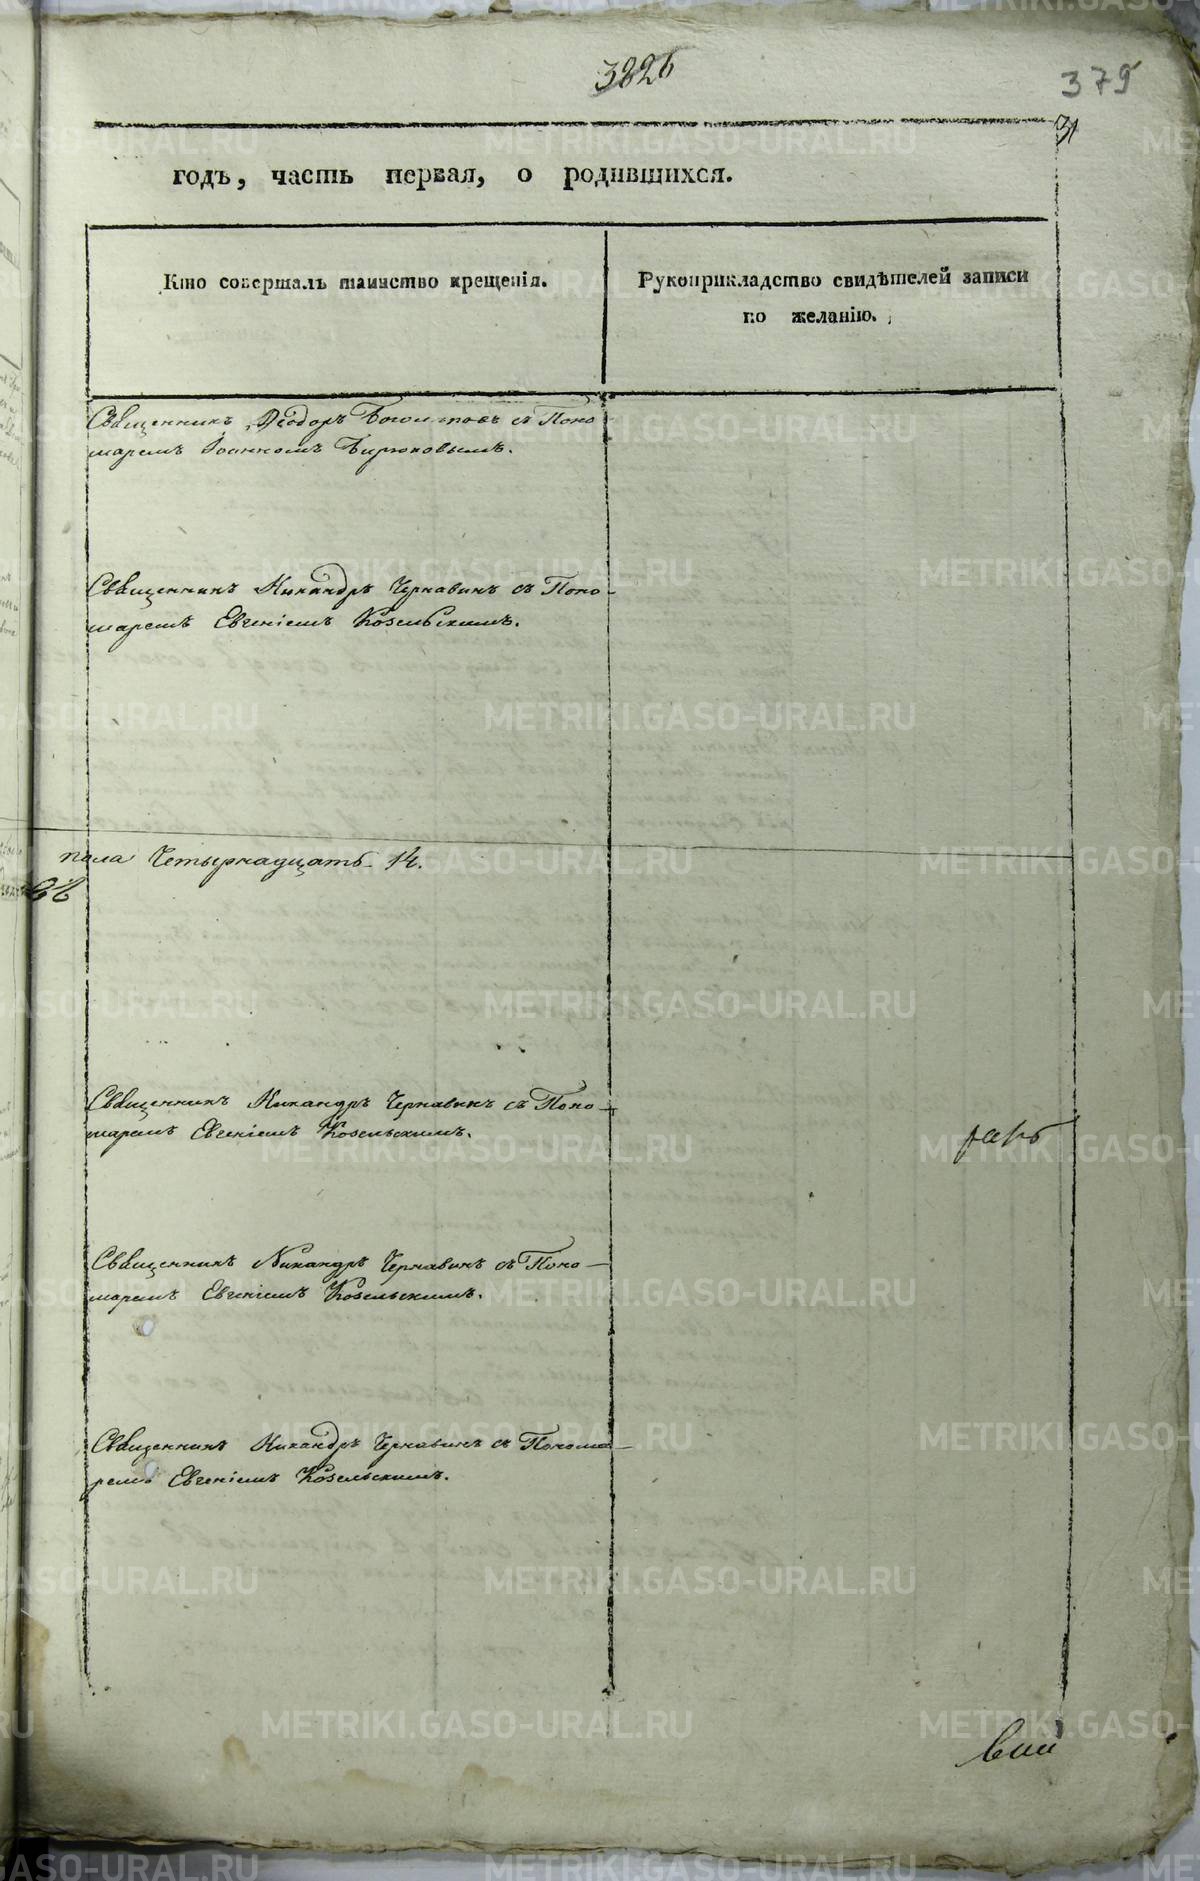 3826
379
31
годъ, часть первая, о родившихся.
Кто совершалъ таинство крещенія.
Рукоприкладство свидѣтелей записи
по желанію.
Священникъ Ѳеодоръ с Поно
маремъ Іоанномъ Бирюковымъ.
Священникъ Никандръ Чернавинъ съ Поно-
маремъ Евгеніемъ Козельскимъ.
пола Четырнадцать 14.
Священникъ Никандръ Чернавинъ съ Поно-
маремъ Евгеніемъ Козельскимъ.
Священникъ Никандръ Чернавинъ съ Поно-
маремъ Евгеніемъ Козельскимъ.
Священникъ Никандръ Чернавинъ съ Понома-
ремъ Евгеніемъ Козельскимъ.
METRIKI.GASO-URAL.RU